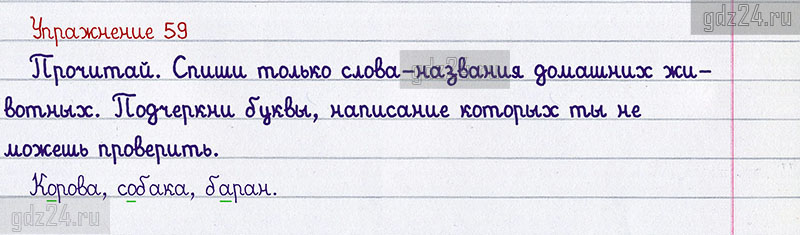 gdz24.ru
Упражнение 59
Прочитай. Спиши только слова-названия домашних жи-
gdz24.ru
вотных. Подчеркни буквы, написание которых ты не
можешь проверить.
Корова, собака, баран.
gdz24.ru
gdz24.ru